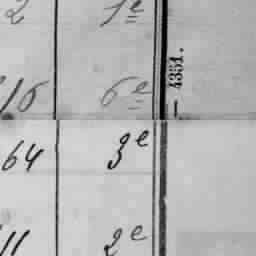 2 1e
16 6e
— 4351.
64 3e
11 2e